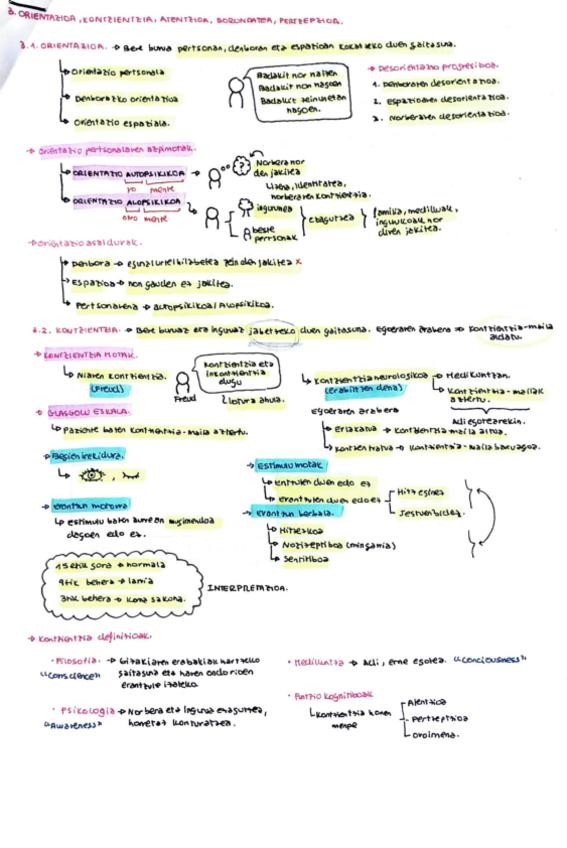 3. ORIENTAZIOA, KONTZIENTZIA, ATENTZIOA, BORONDATEA, PERTZEPZIOA.
3.1. ORIENTAZIOA. → Bere burua pertsonan, denboran eta espazioan kokatzeko duen gaitasuna.
Orientazio pertsonala
Denborazko orientazioa
Orientazio espaziala.
Badakit nor naizen
Badakit non nagoen
Badakit zein unetan
nagoen.
→ Desorientazio progresiboa.
1. Denboraren desorientazioa.
2. Espazioaren desorientazioa.
3. Norberaren desorientazioa.
→ Orientazio pertsonalaren azpimotak.
ORIENTAZIO AUTOPSIKIKOA →
yo mente
ORIENTAZIO ALOPSIKIKOA
otro mente
?
Norbera nor
den jakitea
Izena, identitatea,
norberaren kontzientzia.
ingurunea
beste
pertsonak
ezagutzea
familia, medikuak,
ingurukoak nor
diren jakitea.
→ Orientazio asaldurak.
Denbora → eguna/urtea/hilabetea zein den jakitea x
Espazioa → non gauden ez jakitea.
Pertsonarena → autopsikikoa/Alopsikikoa.
3.2. KONTZIENTZIA. → Bere buruaz eta inguruaz jabetzeko duen gaitasuna. Egoeraren arabera ⇒ kontzientzia-maila
aldatu.
→ KONTZIENTZIA MOTAK.
Niaren kontzientzia.
(Freud)
Freud
Kontzientzia eta
inkontzientzia
ditugu
Lotura ahula.
Kontzientzia neurologikoa
(erabiltzen dena)
→ Medikuntzan.
→ Kontzientzia-mailak
aztertu.
Adi egotearekin.
Egoeraren arabera
Erlaxatua → kontzientzia maila altua.
Kontzentratua → kontzientzia-maila baxuagoa.
→ GLASGOW ESKALA.
Paziente baten kontzientzia-maila aztertu.
→ Begien irekidura.
→ Estimulu motak
entzuten duen edo ez
erantzuten duen edo ez
Hitz eginez
Zeinuen bidez.
→ Erantzun motorra
estimulu baten aurrean mugimendua
dagoen edo ez.
→ Erantzun berbala.
Hitzezkoa
Nozizeptiboa (mingarria)
Sentitiboa
15etik gora → normala
9tik behera → larria
3tik behera → koma sakona.
INTERPRETAZIOA.
→ Kontzientzia definizioak.
• Filosofia. → Gizakiaren erabakiak hartzeko
"conscience" gaitasuna eta haren ondorioen
erantzule izateko.
• Medikuntza → Adi, erne egotea. "Conciousness"
• Psikologia → Norbera eta ingurua ezagutzea,
"Awareness" honetaz konturatzea.
• Funtzio kognitiboak
Kontzientzia honen
menpe
Atentzioa
Pertzepzioa
Oroimena.